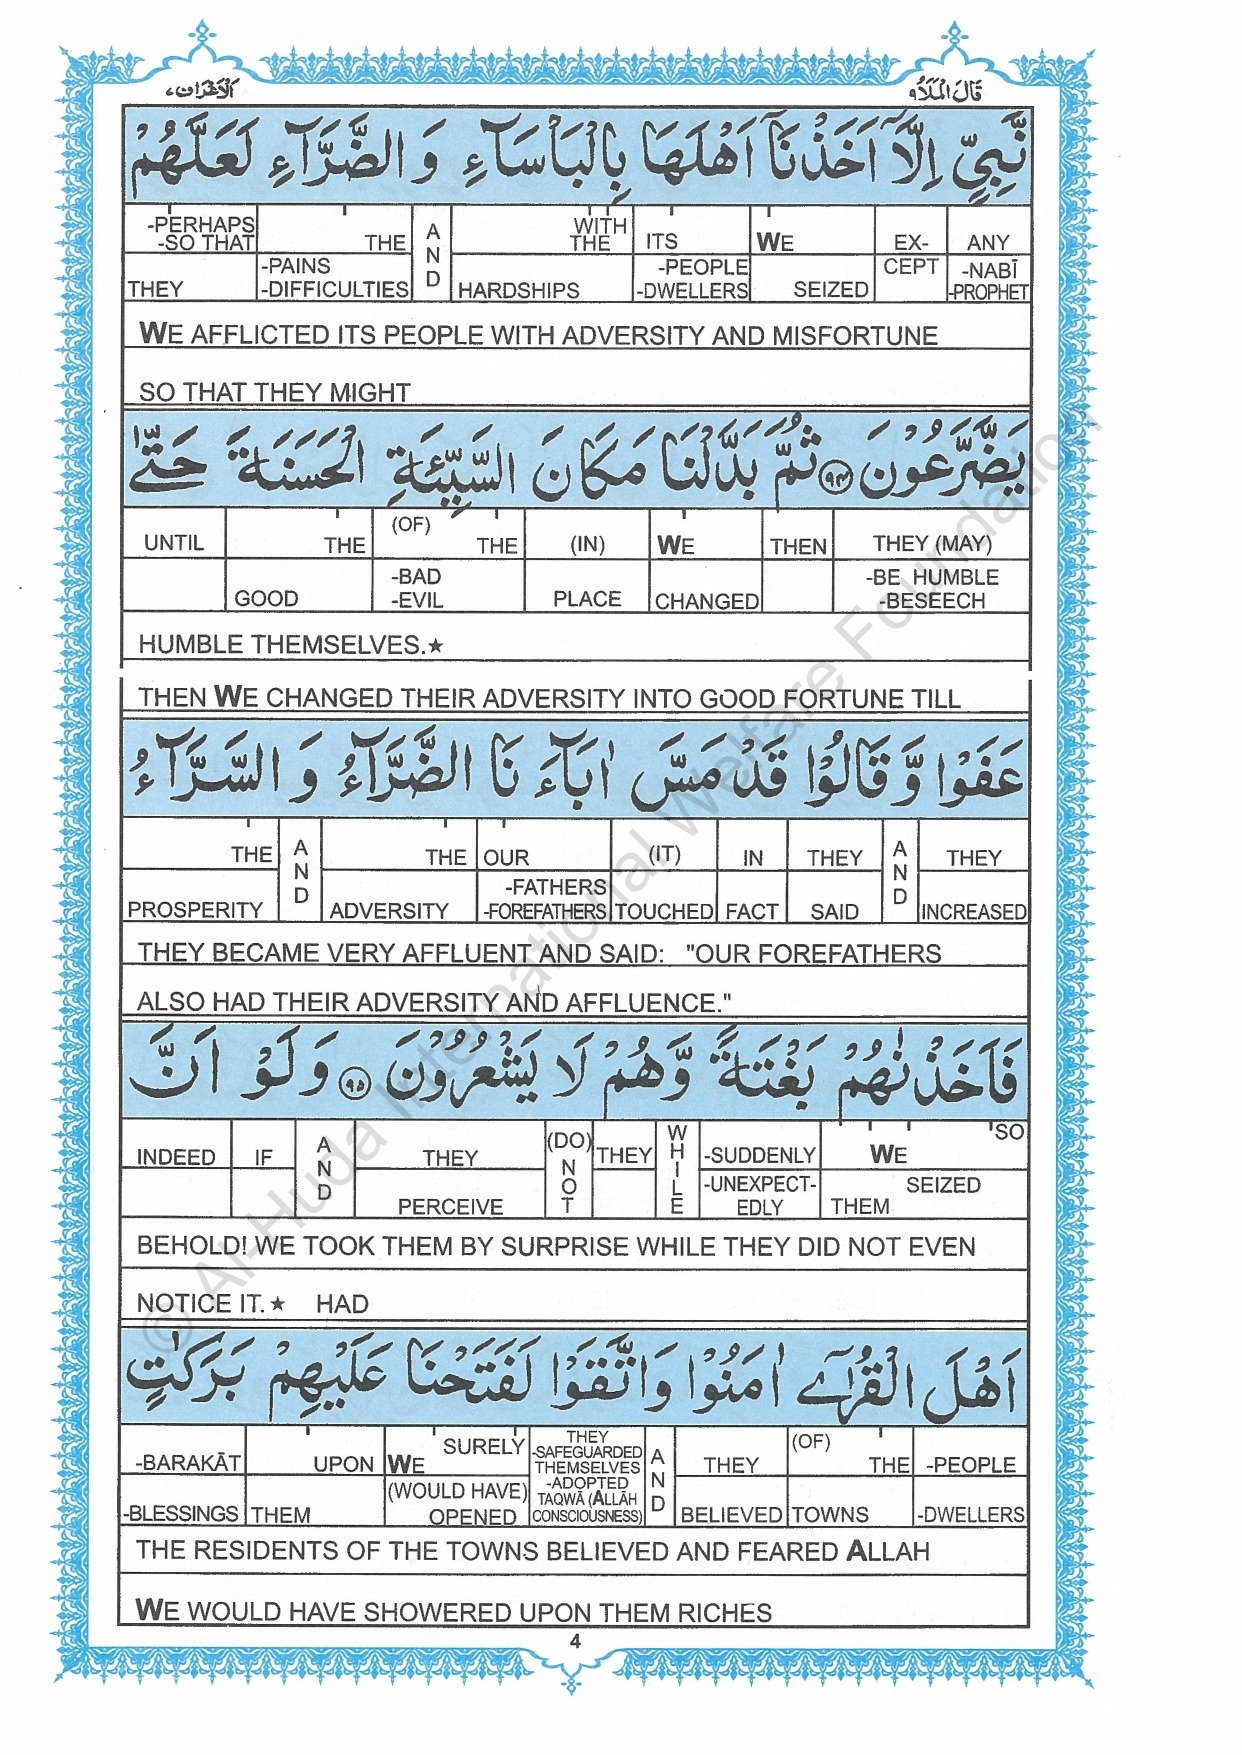 الاعراف ٧
قَالَ الْمَلَاُ ٩
نَّبِيٍّ اِلَّاۤ اَخَذْنَاۤ اَهْلَهَا بِالْبَاْسَآءِ وَ الضَّرَّآءِ لَعَلَّهُمْ
-PERHAPS -SO THAT THE AND WITH THE ITS WE EX- ANY
THEY -PAINS -DIFFICULTIES HARDSHIPS -PEOPLE -DWELLERS SEIZED CEPT -NABĪ -PROPHET
WE AFFLICTED ITS PEOPLE WITH ADVERSITY AND MISFORTUNE
SO THAT THEY MIGHT
يَضَّرَّعُوْنَ ٩٤ ثُمَّ بَدَّلْنَا مَكَانَ السَّيِّئَةِ الْحَسَنَةَ حَتّٰى
UNTIL THE (OF) THE (IN) WE THEN THEY (MAY)
GOOD -BAD -EVIL PLACE CHANGED -BE HUMBLE -BESEECH
HUMBLE THEMSELVES.★
THEN WE CHANGED THEIR ADVERSITY INTO GOOD FORTUNE TILL
عَفَوْا وَّ قَالُوْا قَدْ مَسَّ اٰبَآءَ نَا الضَّرَّآءُ وَ السَّرَّآءُ
THE AND THE OUR (IT) IN THEY AND THEY
PROSPERITY ADVERSITY -FATHERS -FOREFATHERS TOUCHED FACT SAID INCREASED
THEY BECAME VERY AFFLUENT AND SAID: "OUR FOREFATHERS
ALSO HAD THEIR ADVERSITY AND AFFLUENCE."
فَاَخَذْنٰهُمْ بَغْتَةً وَّهُمْ لَا يَشْعُرُوْنَ ٩٥ وَلَوْ اَنَّ
INDEED IF AND THEY (DO) NOT THEY WHILE -SUDDENLY WE SO
PERCEIVE -UNEXPECT- EDLY THEM SEIZED
BEHOLD! WE TOOK THEM BY SURPRISE WHILE THEY DID NOT EVEN
NOTICE IT.★ HAD
اَهْلَ الْقُرٰٓى اٰمَنُوْا وَاتَّقَوْا لَفَتَحْنَا عَلَيْهِمْ بَرَكٰتٍ
-BARAKĀT UPON WE SURELY THEY -SAFEGUARDED THEMSELVES AND THEY (OF) THE -PEOPLE
-BLESSINGS THEM (WOULD HAVE) OPENED -ADOPTED TAQWĀ (ALLĀH CONSCIOUSNESS) BELIEVED TOWNS -DWELLERS
THE RESIDENTS OF THE TOWNS BELIEVED AND FEARED ALLAH
WE WOULD HAVE SHOWERED UPON THEM RICHES
4
© Al-Huda International Welfare Foundation